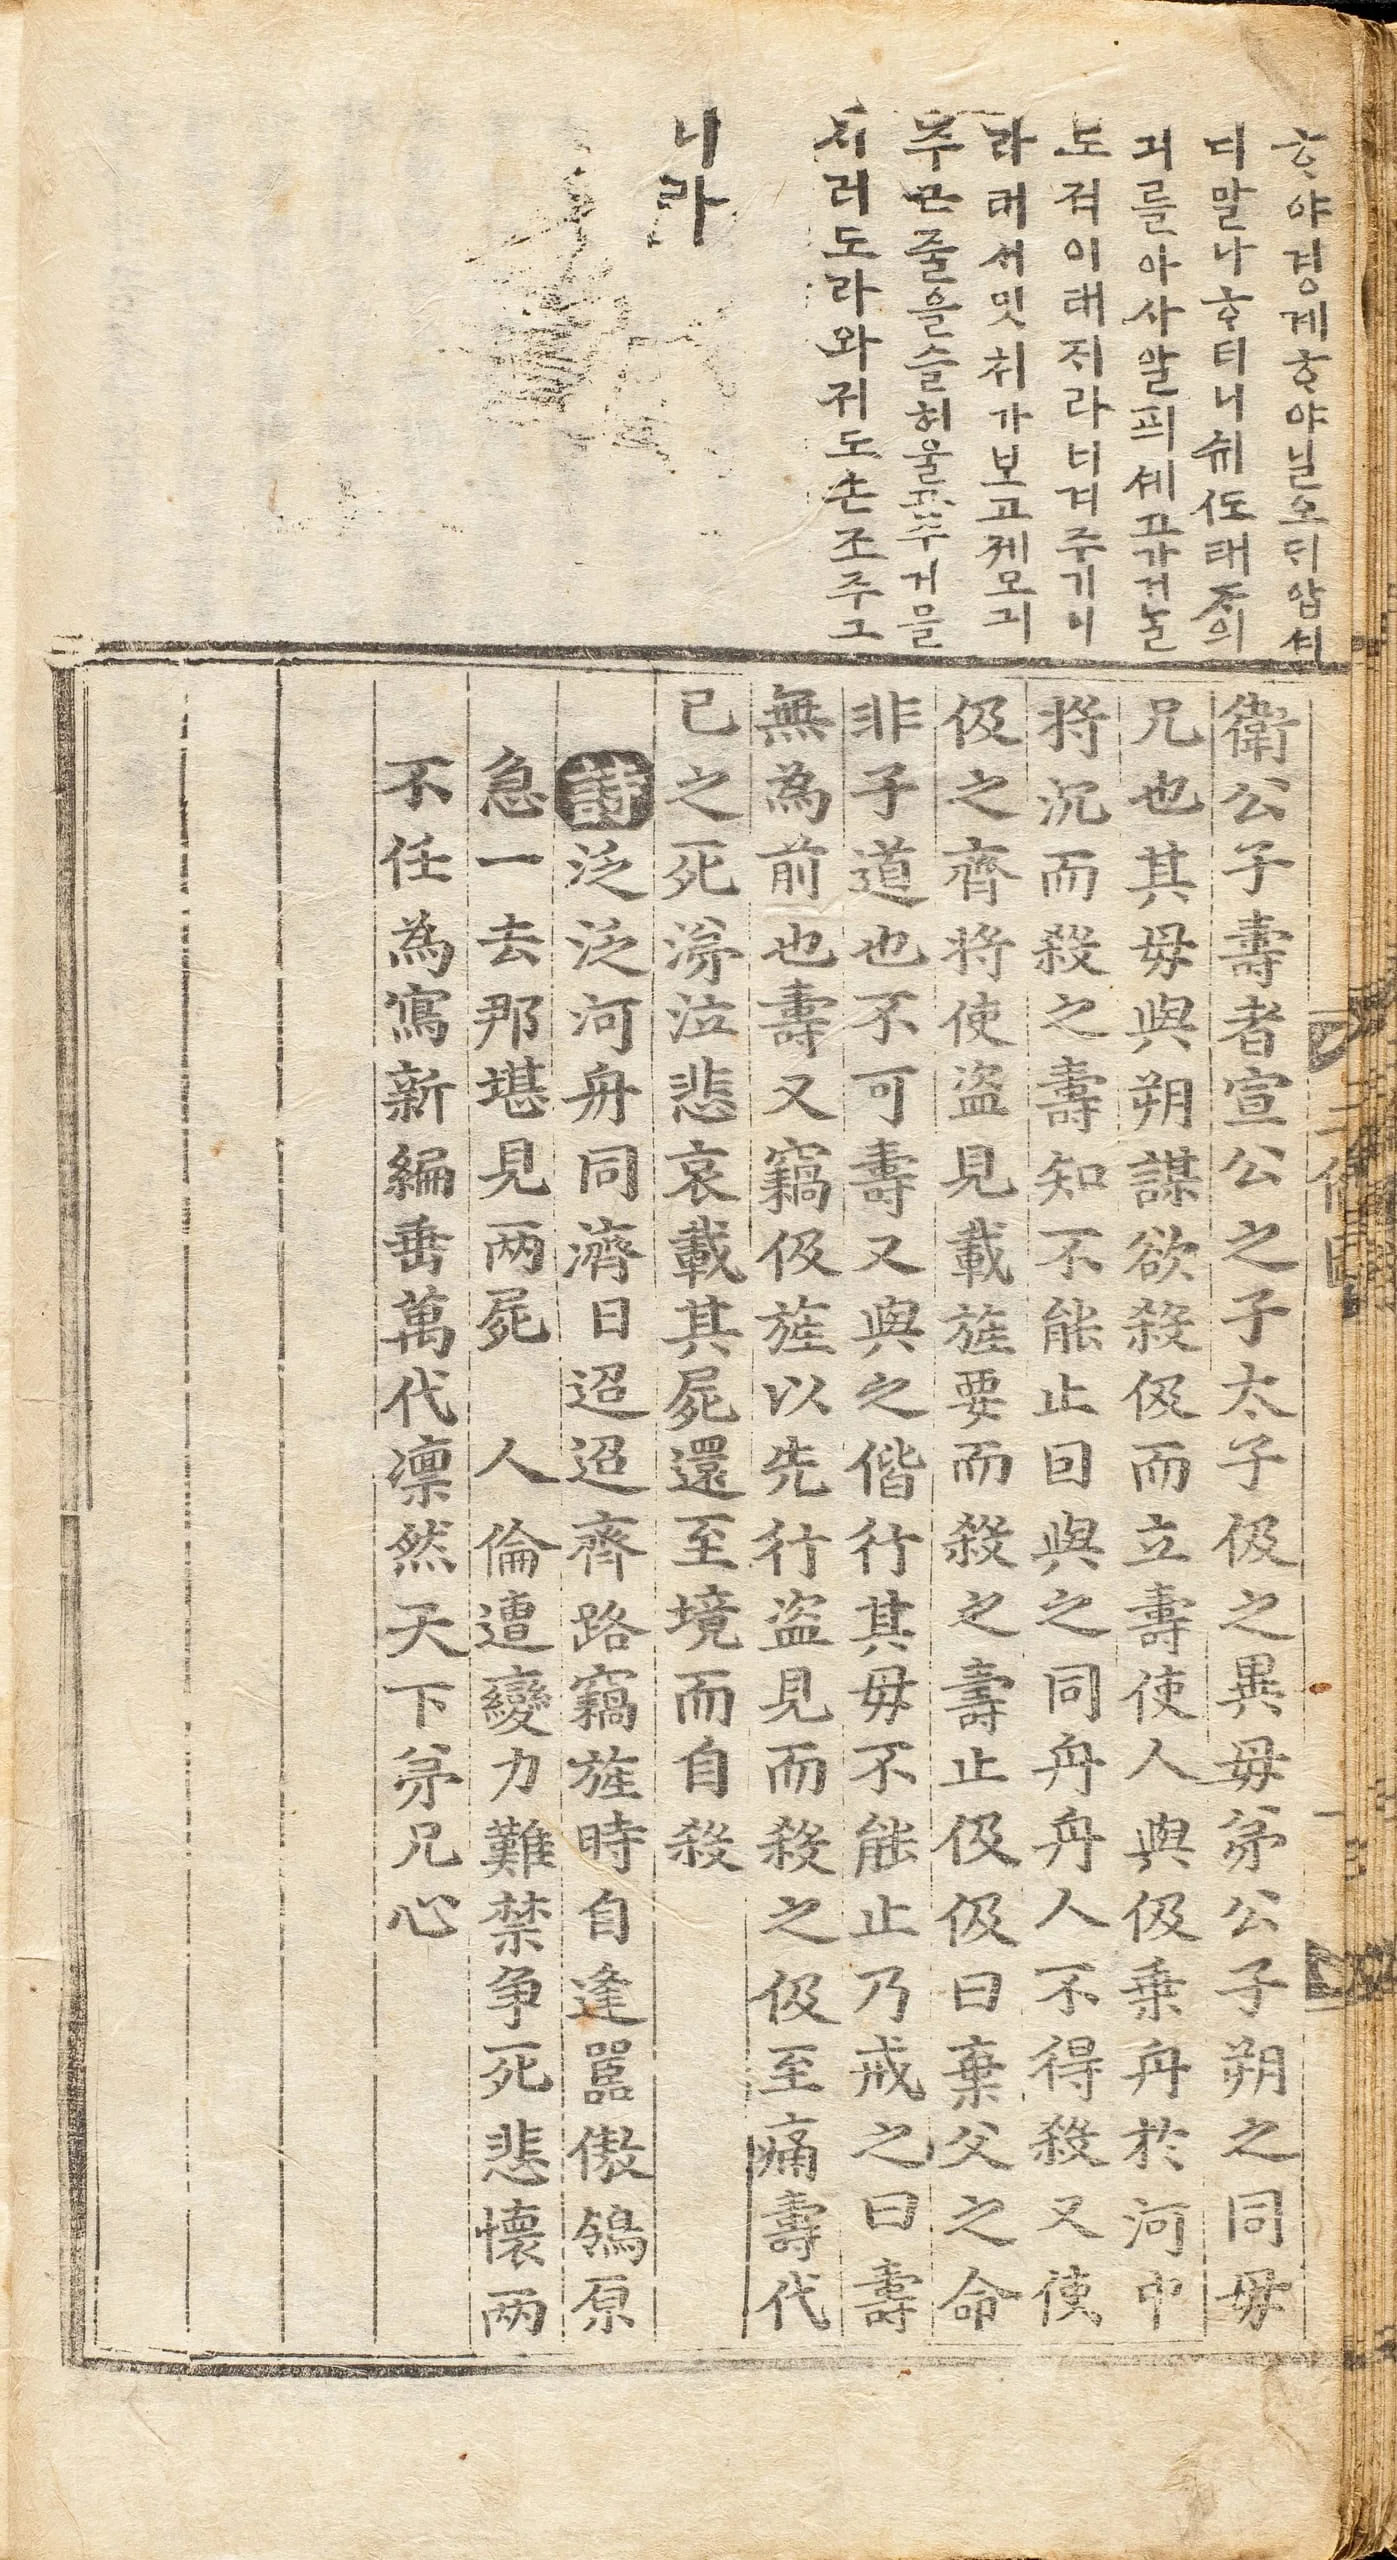 ᄒᆞ야경계ᄒᆞ야닐오ᄃᆡ압셔
디말나ᄒᆞ더니쉬ᄯᅩ태ᄌᆞ의
긔를아사알픠셰고가거늘
도적이태지라녀겨주기이
라태ᄌᆡ밋처가보고제모긔
주근줄을슬허울고주거믈
시러도라와저도손조주그
니라
衛公子壽者宣公之子太子伋之異母弟公子朔之同母
兄也其母與朔謀欲殺伋而立壽使人與伋乗舟於河中
将沉而殺之壽知不能止因與之同舟舟人不得殺又使
伋之齊将使盗見載旌要而殺之壽止伋伋曰棄父之命
非子道也不可壽又與之偕行其母不能止乃戒之曰壽
無為前也壽又竊伋旌以先行盗見而殺之伋至痛壽代
已之死涕泣悲哀載其屍還至境而自殺
詩泛泛河舟同濟日迢迢齊路竊旌時自逢嚚傲鴒原
急一去那堪見两屍 人倫遭變力難禁争死悲懷两
不任為寫新編垂萬代凛然天下弟兄心